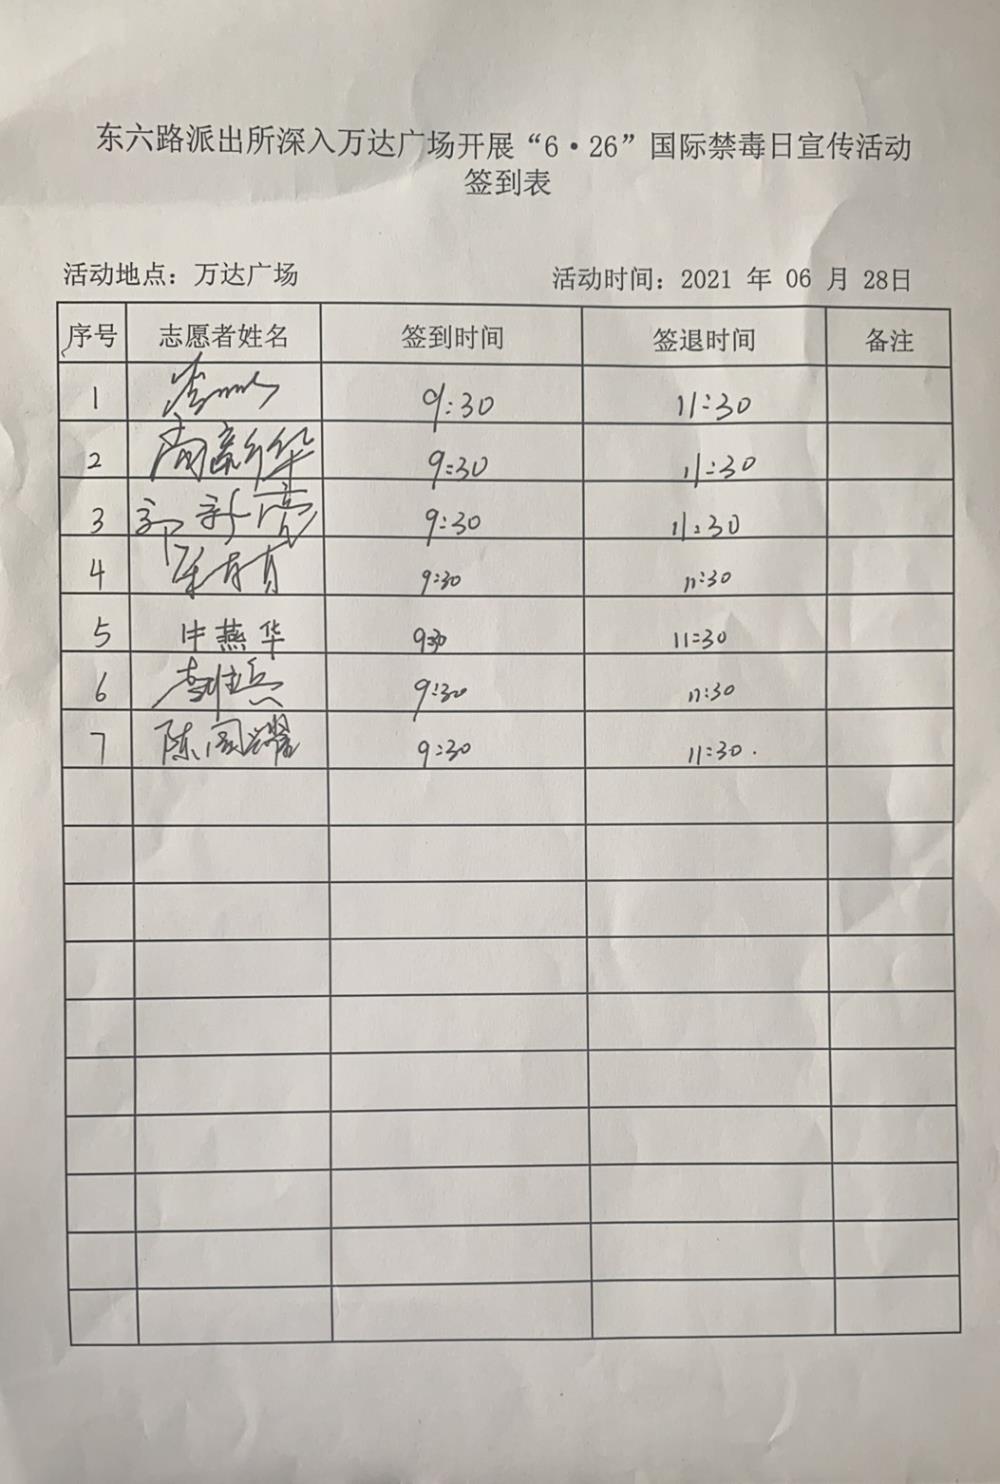 东六路派出所深入万达广场开展“6·26”国际禁毒日宣传活动
签到表
活动地点：万达广场 活动时间：2021 年 06 月 28日
序号 志愿者姓名 签到时间 签退时间 备注
1 9:30 11:30
2 9:30 11:30
3 郭新亮 9:30 11:30
4 9:30 11:30
5 申燕华 9:30 11:30
6 9:30 11:30
7 9:30 11:30